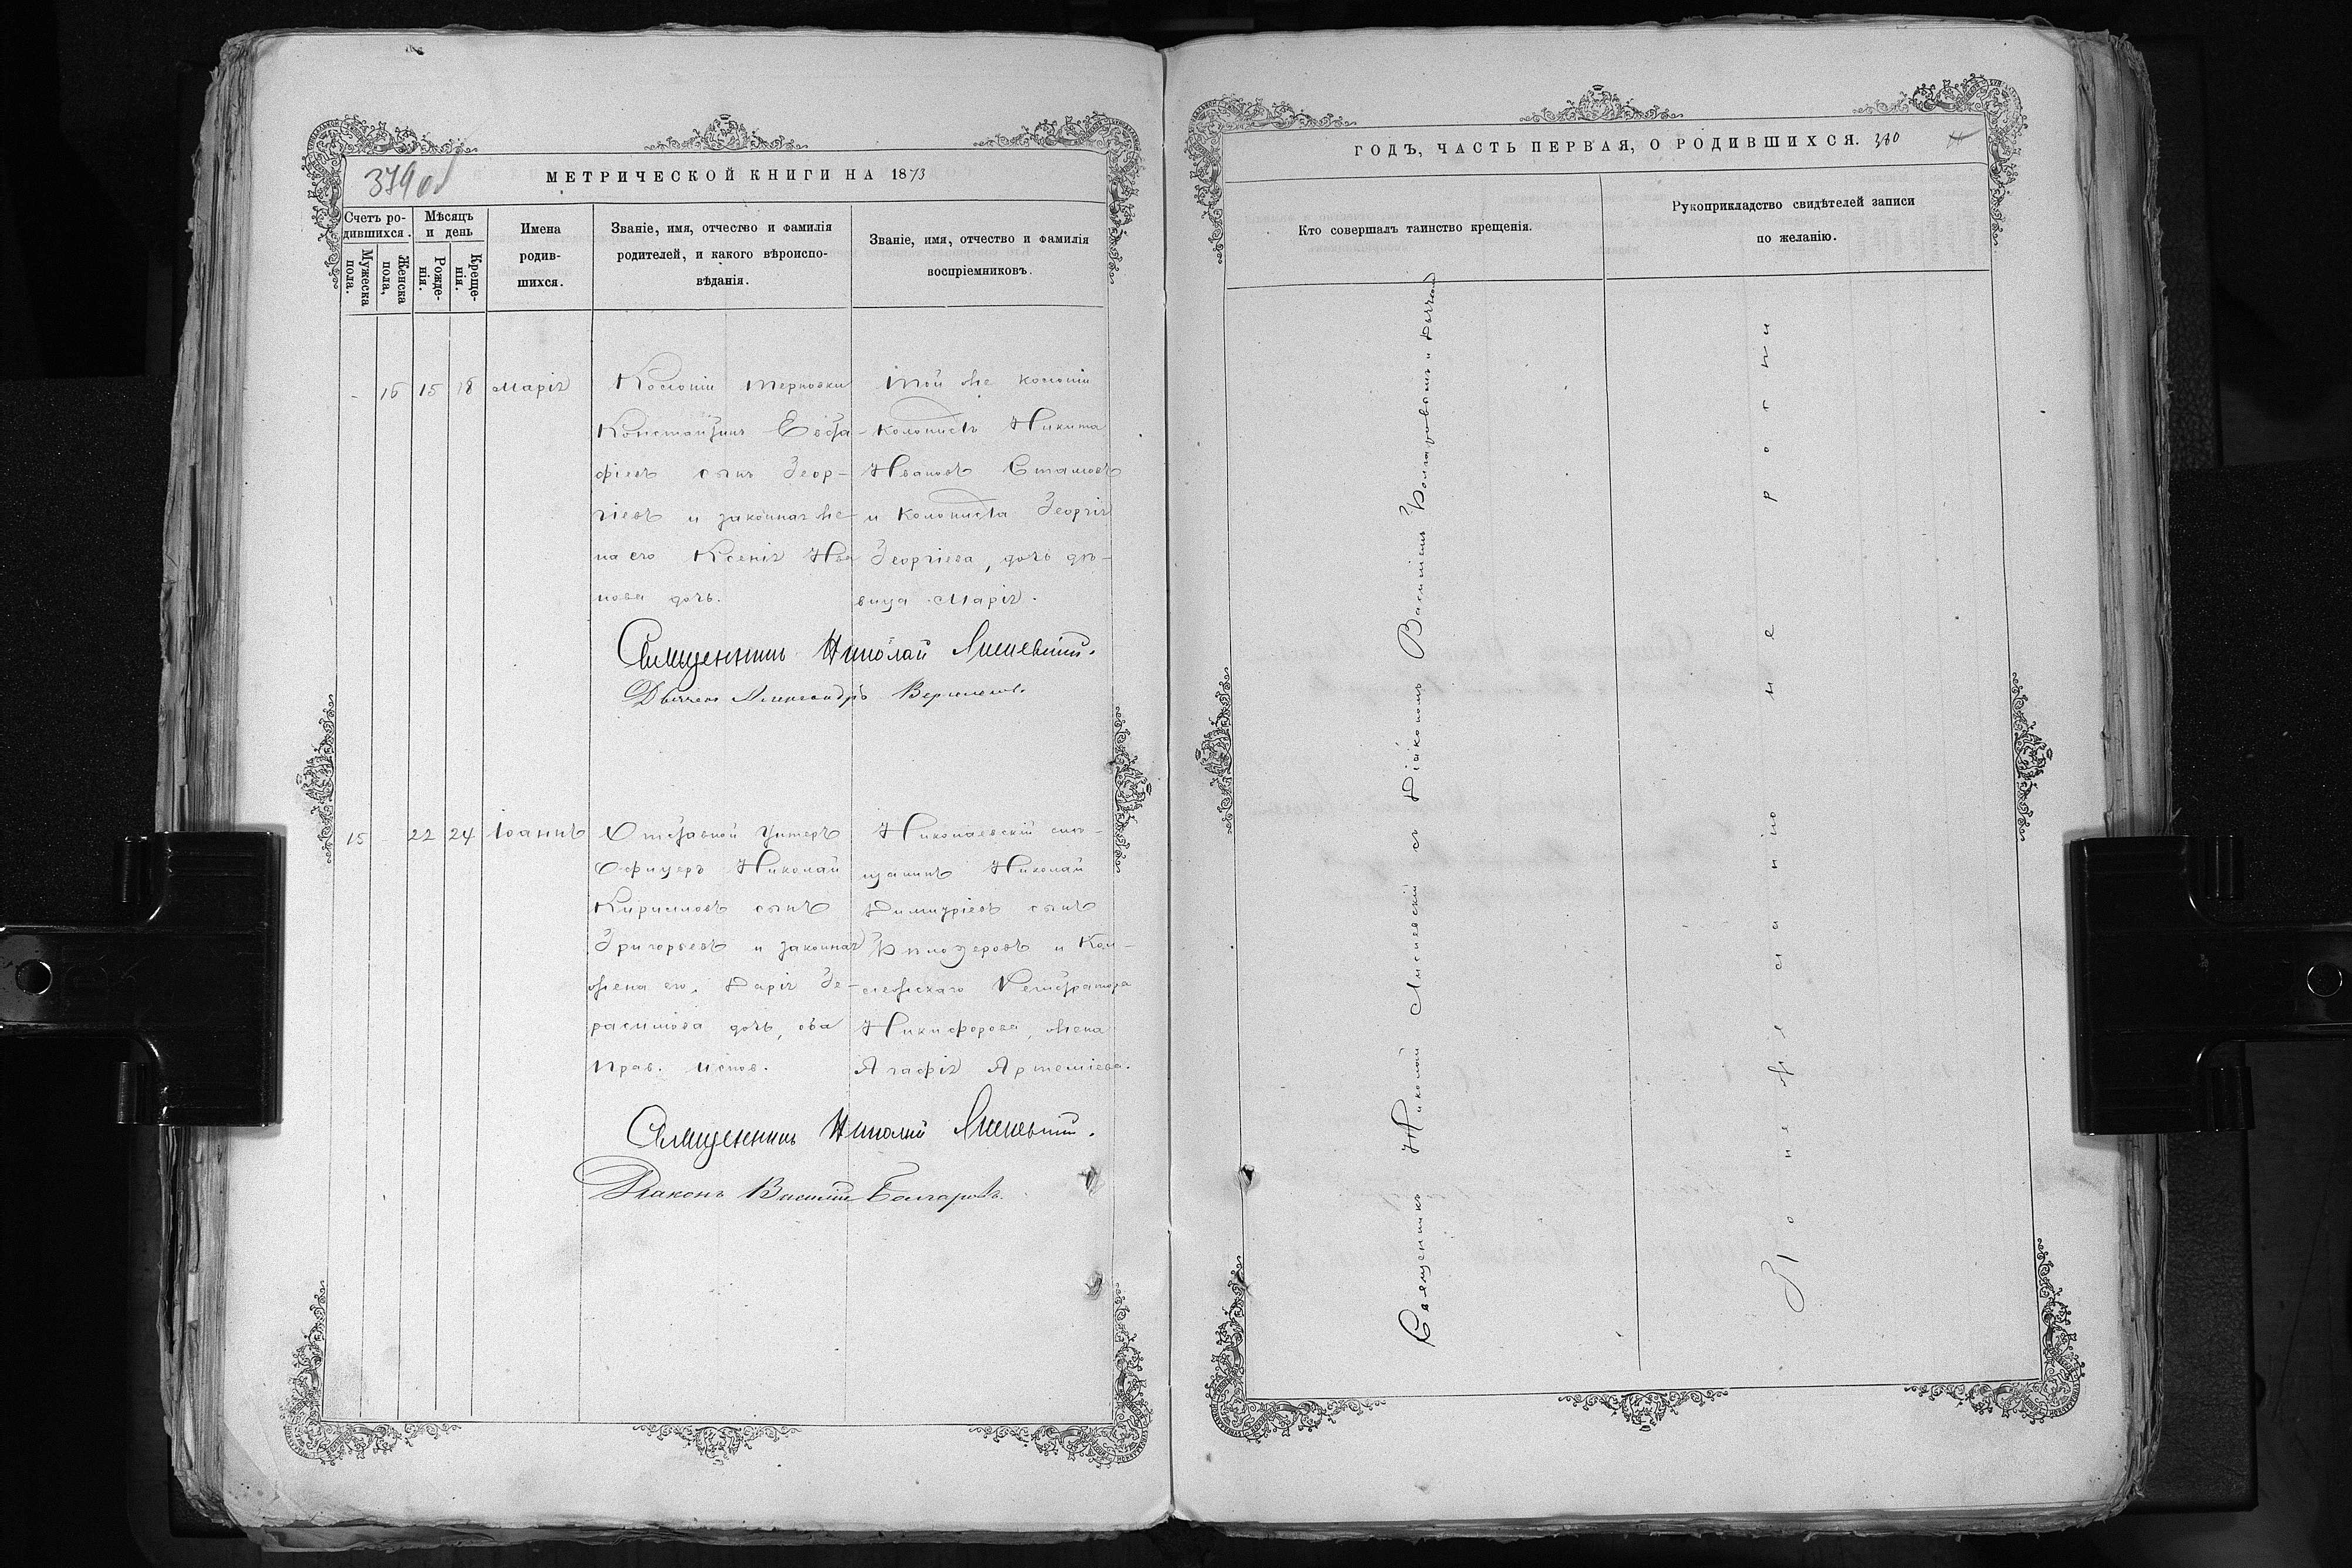 379 об
МЕТРИЧЕСКОЙ КНИГИ НА 1873
Счетъ ро-
дившихся.
Мужеска
пола.
Женска
пола,
Мѣсяцъ
и день
Рожде-
нія.
Креще-
нія.
Имена
родив-
шихся.
Званіе, имя, отчество и фамилія
родителей, и какого вѣроиспо-
вѣданія.
Званіе, имя, отчество и фамилія
воспріемниковъ.
- 15 18 Марія
Колоніи Терновки
Константинъ Евста-
фіевъ сынъ Геор-
гіевъ и законная же-
на его Ксенія Ива
нова дочь.
Той же колоніи
Колонистъ Никита
Ивановъ Стамовъ
и Колониста Георгія
Георгіева, дочь дѣ-
вица Марія.
Священникъ Николай Лисневскій.
Дьячекъ Александръ
15 - 22 24 Іоаннъ
Отставной Унтеръ
Офицеръ Николай
Кирилловъ сынъ
Григорьевъ и законная
жена его, Дарія Ге-
расимова дочь, оба
Прав. Испов.
Николаевскій мѣ-
щанинъ Николай
Димитріевъ сынъ
и Кол-
лежскаго Регистратора
Никифорова жена
Агафія Артеміева.
Священникъ Николай Лисневскій.
Діаконъ Василій Болгаровъ.
ГОДЪ, ЧАСТЬ ПЕРВАЯ, О РОДИВШИХСЯ. 380
Кто совершалъ таинство крещенія.
Рукоприкладство свидѣтелей записи
по желанію.
Священникъ Николай Лисневскій съ Діакономъ Василіемъ Болгаровымъ и Дьячкомъ
По нежеланію неротни